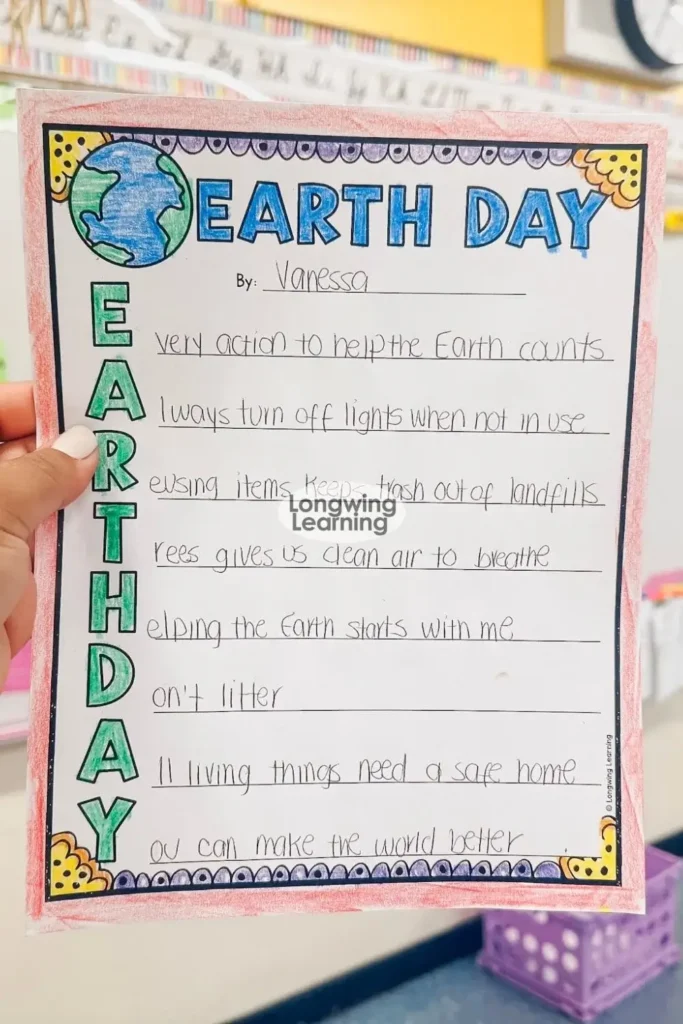 EARTH DAY
By: Vanessa
Every action to help the Earth counts
Always turn off lights when not in use
Reusing items keeps trash out of landfills
Trees gives us clean air to breathe
Helping the Earth starts with me
Don't litter
All living things need a safe home
You can make the world better
Longwing
Learning
© Longwing Learning